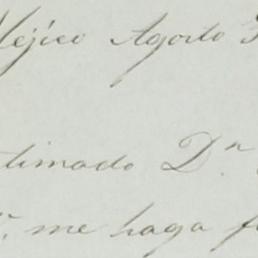 Méjico Agosto
estimado D.ⁿ
me haga